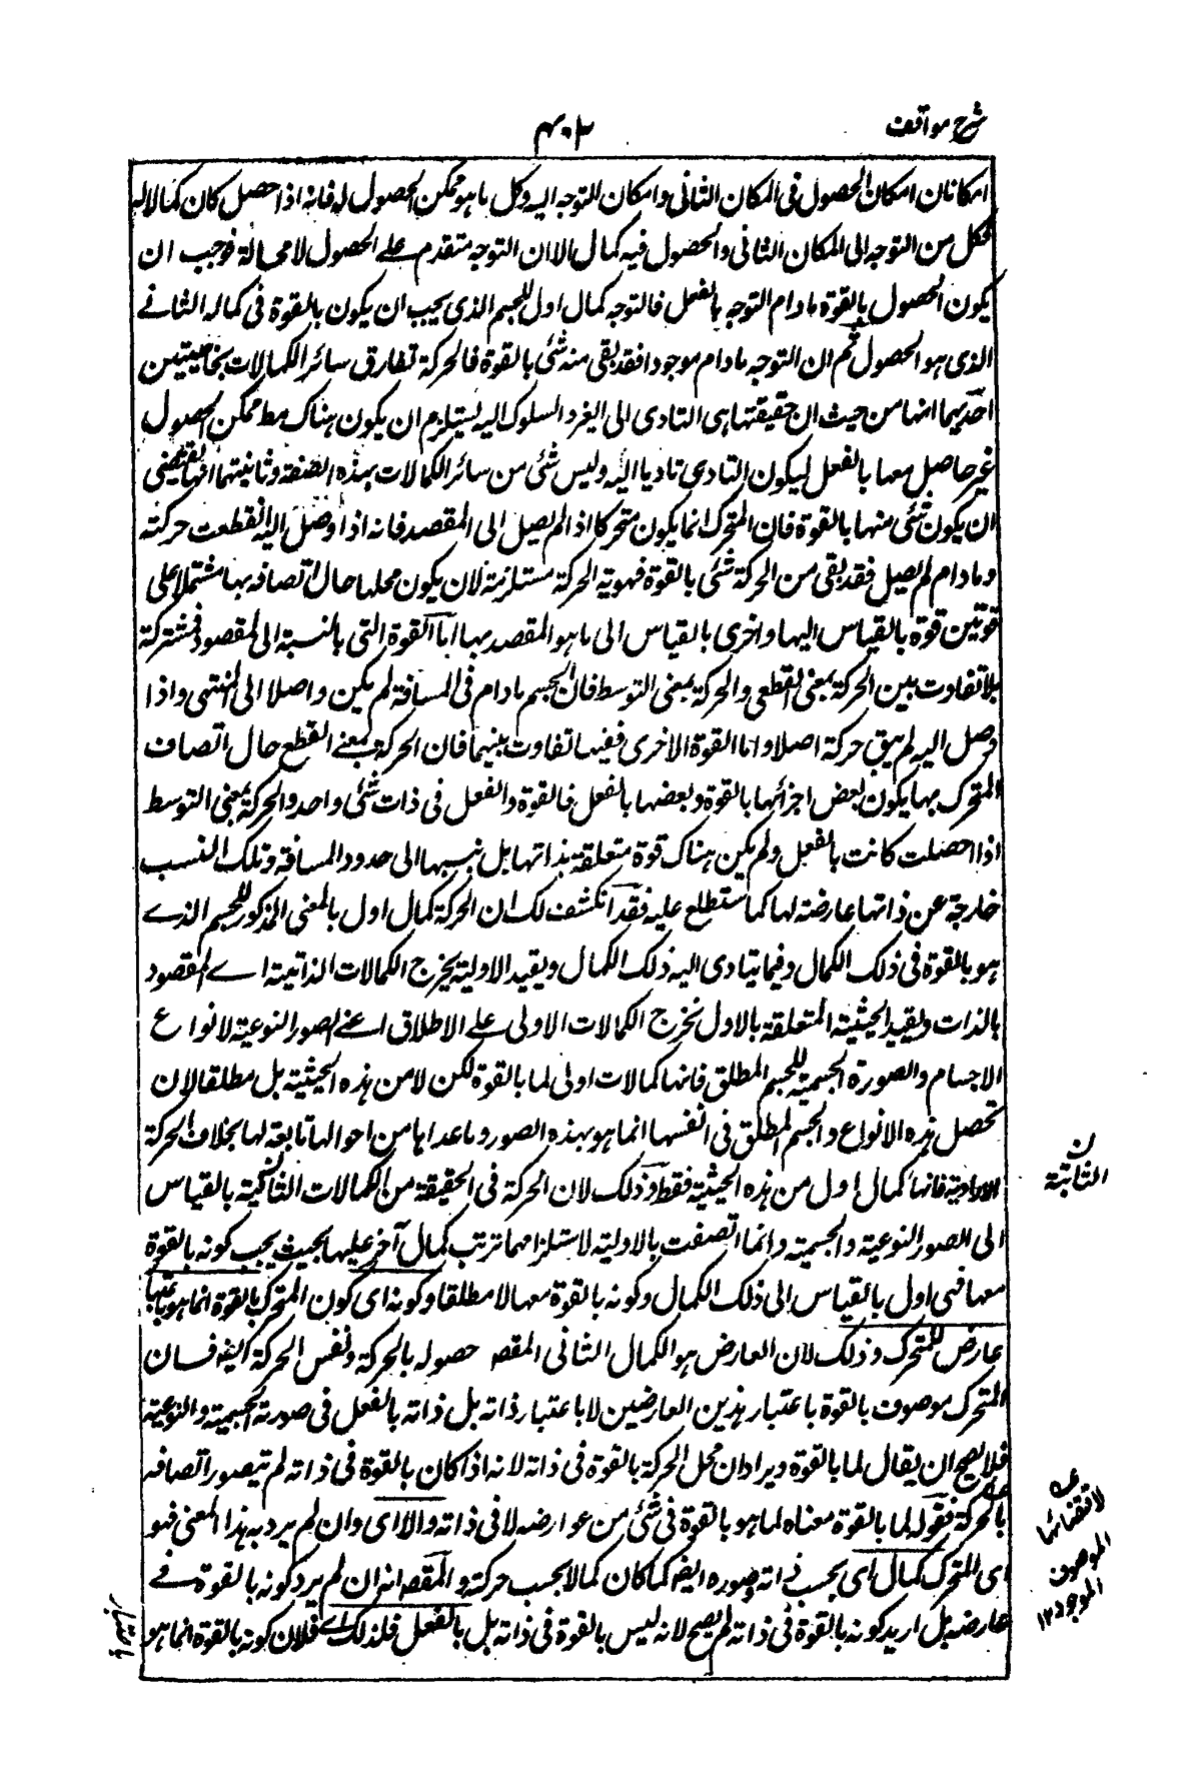 شرح مواقف
۴۰۳
امكانان امكان الحصول فى المكان الثانى وامكان التوجه اليه وكل ما هو ممكن الحصول له فانه اذا حصل كان كمالا له
فكل من التوجه الى المكان الثانى والحصول فيه كمال الا ان التوجه متقدم على الحصول لا محالة فوجب ان
يكون الحصول بالقوة ما دام التوجه بالفعل فالتوجه كمال اول للجسم الذى يجب ان يكون بالقوة فى كماله الثانے
الذى هو الحصول ثم ان التوجه ما دام موجودا فقد بقى منه شئ بالقوة فالحركة تفارق سائر الكمالات بخاصيتين
احدٰيهما انها من حيث ان حقيقتها هى التادى الى الغير والسلوك اليه يستلزم ان يكون هناك مط ممكن الحصول
غير حاصل معها بالفعل ليكون التادى تاديا اليه وليس شئ من سائر الكمالات بهذه الصفة وثانيتهما انها تقتضى
ان يكون شئ منها بالقوة فان المتحرك انما يكون متحركا اذا لم يصل الى المقصد فانه اذا وصل اليه انقطعت حركته
وما دام لم يصل فقد بقى من الحركة شئ بالقوة فهوية الحركة مستلزمة لان يكون محلها حال اتصافه بها مشتملا على
قوتين قوة بالقياس اليها واخرى بالقياس الى ما هو المقصد بها اما القوة التى بالنسبة الى المقصود فمشتركة
بلا تفاوت بين الحركة بمعنى القطعى والحركة بمعنى التوسط فان الجسم ما دام فى المسافة لم يكن واصلا الى المنتهى واذا
وصل اليه لم يبق حركة اصلا واما القوة الاخرى ففيها تفاوت بينهما فان الحركة بمعنے القطع حال اتصاف
المتحرك بها يكون بعض اجزائها بالقوة وبعضها بالفعل فالقوة والفعل فى ذات شئ واحد والحركة بمعنى التوسط
اذا حصلت كانت بالفعل ولم يكن هناك قوة متعلقة بذاتها بل بنسبها الى حدود المسافة وتلك النسب
خارجة عن ذاتها عارضة لها كما ستطلع عليه فقد انكشف لك ان الحركة كمال اول بالمعنى المذكور للجسم الذے
هو بالقوة فى ذلك الكمال وفيما يتادى اليه ذلك الكمال وبقيد الاولية يخرج الكمالات الثانية اے المقصود
بالذات وبقيد الحيثية المتعلقة بالاول تخرج الكمالات الاولى على الاطلاق اعنے الصور النوعية لانواع
الاجسام والصورة الجسمية للجسم المطلق فانها كمالات اولى لما بالقوة لكن لا من هذه الحيثية بل مطلقا لان
تحصل هذه الانواع والجسم المطلق فى انفسها انما هو بهذه الصور وما عداها من احوالها تابعة لها بخلاف الحركة
فانها كمال اول من هذه الحيثية فقط وذلك لان الحركة فى الحقيقة من الكمالات الثانية بالقياس
الى الصور النوعية والجسمية وانما اتصفت بالاولية لاستلزامها ترتب كمال آخر عليها بحيث يجب كونه بالقوة
معها فهى اول بالقياس الى ذلك الكمال وكونه بالقوة معها لا مطلقا وكونه اى كون المتحرك بالقوة انما هو باعتبار
عارض للمتحرك وذلك لان العارض هو الكمال الثانى المقص حصوله بالحركة ونفس الحركة ايضا فان
المتحرك موصوف بالقوة باعتبار هذين العارضين لا باعتبار ذاته بل ذاته بالفعل فى صورته الجسمية والنوعية
فلا يصح ان يقال لما بالقوة ويراد ان محل الحركة بالقوة فى ذاته لانه اذا كان بالقوة فى ذاته لم يتصور اتصافه
بالحركة فقوله لما بالقوة معناه لما هو بالقوة فى شئ من عوارضه لا فى ذاته والا اى وان لم يرد به هذا المعنى فهو
اى المتحرك كمال اى بحسب ذاته وصوره ايضا كما كان كمالا بحسب حركته والمقص انه ان لم يرد كونه بالقوة فے
عارضه بل اريد كونه بالقوة فى ذاته لم يصح لانه ليس بالقوة فى ذاته بل بالفعل فلذلك اے فلان كونه بالقوة انما هو
ن
الثابتة
لاقتضائها
الموصوف
الموجود ۱۲